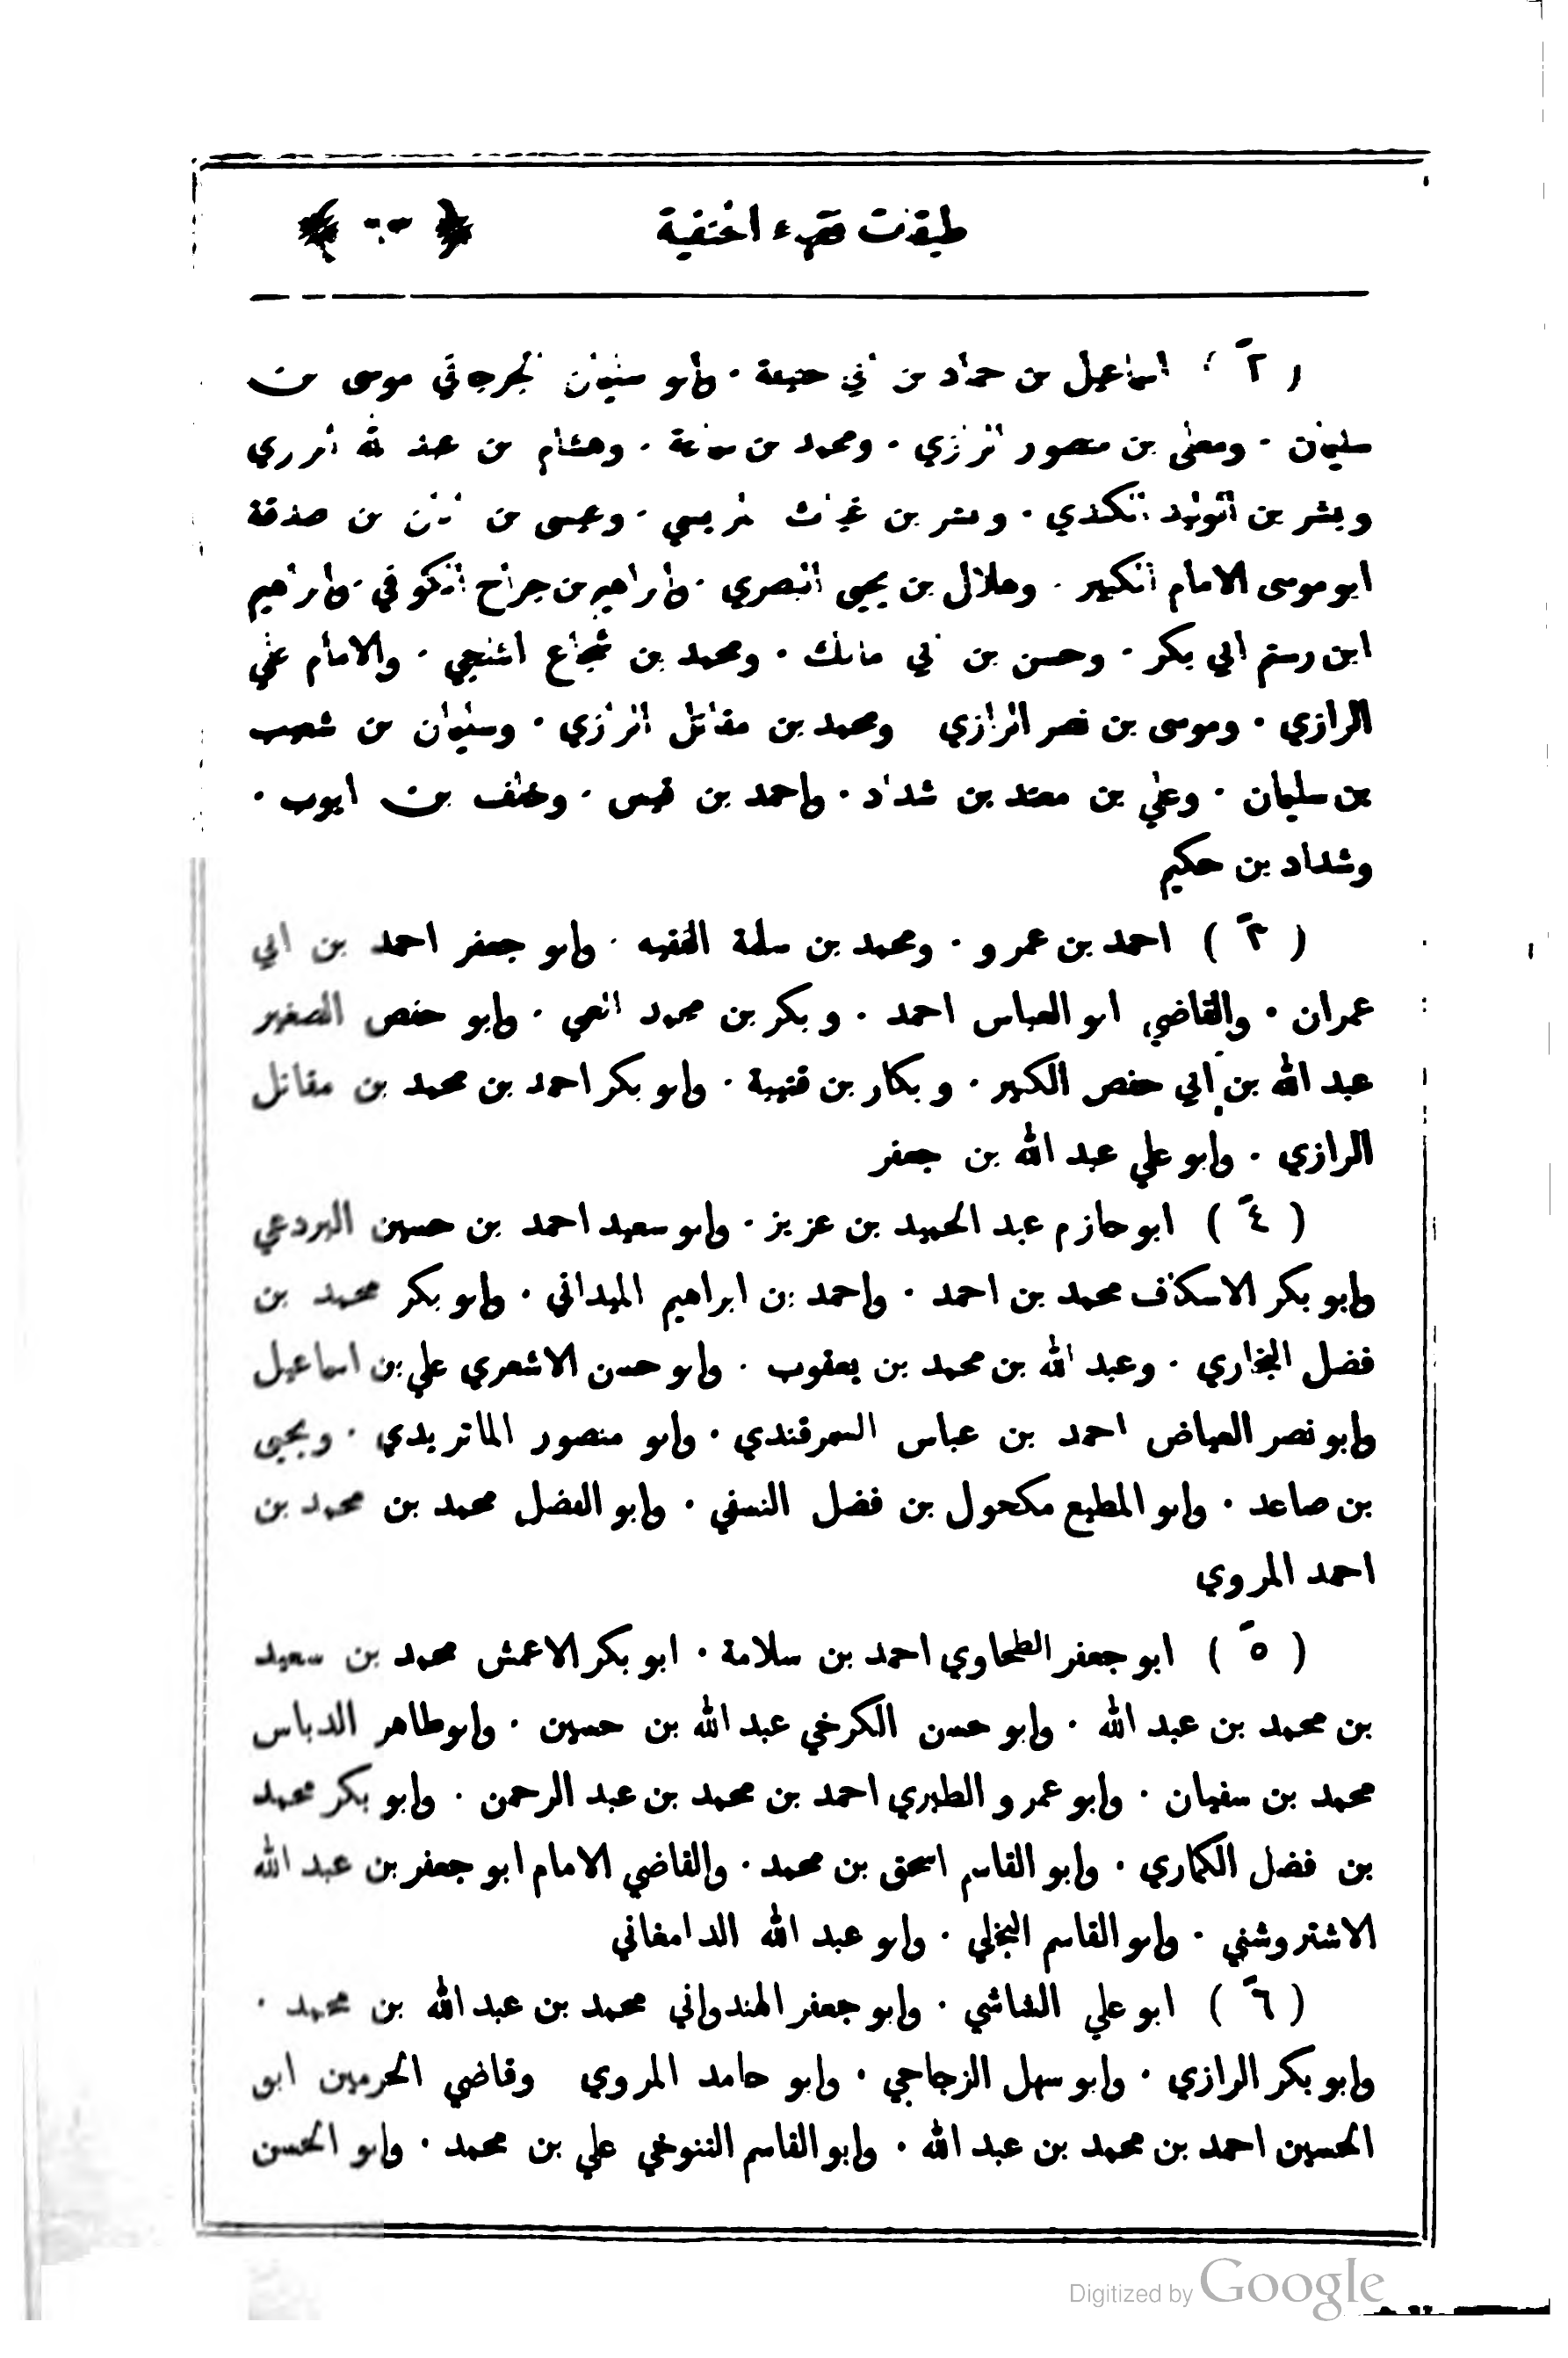 طبقات فقهاء الحنفية
( ٢ ) اسماعيل بن حماد بن ابي حنيفة . وابو سليمان الجرجاني موسى بن
سليمان . ومعلى بن منصور الرازي . ومحمد بن سماعة . وهشام بن عبد الله الرازي
وبشر بن الوليد الكندي . وبشر بن غياث المريسي . وعيسى بن ابان بن صدقة
ابو موسى الامام الكبير . وهلال بن يحيى البصري . وابراهيم بن جراح الكوفي . وابراهيم
ابن رستم ابي بكر . وحسن بن ابي مالك . ومحمد بن شجاع الثلجي . والامام علي
الرازي . وموسى بن نصر الرازي ومحمد بن مقاتل الرازي . وسليمان بن شعيب
بن سليمان . وعلي بن معبد بن شداد . واحمد بن قيس . وخلف بن ايوب .
وشداد بن حكيم
( ٣ ) احمد بن عمرو . ومحمد بن سلمة الفقيه . وابو جعفر احمد بن ابي
عمران . والقاضي ابو العباس احمد . وبكر بن محمود العمي . وابو حفص الصغير
عبد الله بن ابي حفص الكبير . وبكار بن قتيبة . وابو بكر احمد بن محمد بن مقاتل
الرازي . وابو علي عبد الله بن جعفر
( ٤ ) ابو حازم عبد الحميد بن عزيز . وابو سعيد احمد بن حسين البردعي
وابو بكر الاسكاف محمد بن احمد . واحمد بن ابراهيم الميداني . وابو بكر محمد بن
فضل البخاري . وعبد الله بن محمد بن يعقوب . وابو حسن الاشعري علي بن اسماعيل
وابو نصر العياض احمد بن عباس السمرقندي . وابو منصور الماتريدي . ويحيى
بن صاعد . وابو المطيع مكحول بن فضل النسفي . وابو الفضل محمد بن محمد بن
احمد المروي
( ٥ ) ابو جعفر الطحاوي احمد بن سلامة . ابو بكر الاعمش محمد بن سعيد
بن محمد بن عبد الله . وابو حسن الكرخي عبد الله بن حسين . وابو طاهر الدباس
محمد بن سفيان . وابو عمرو الطبري احمد بن محمد بن عبد الرحمن . وابو بكر محمد
بن فضل الكماري . وابو القاسم اسحق بن محمد . والقاضي الامام ابو جعفر بن عبد الله
الاشتروشني . وابو القاسم البخلي . وابو عبد الله الدامغاني
( ٦ ) ابو علي الشاشي . وابو جعفر الهندواني محمد بن عبد الله بن محمد .
وابو بكر الرازي . وابو سهل الزجاجي . وابو حامد المروي وقاضي الحرمين ابو
الحسين احمد بن محمد بن عبد الله . وابو القاسم التنوخي علي بن محمد . وابو الحسن
Digitized by Google